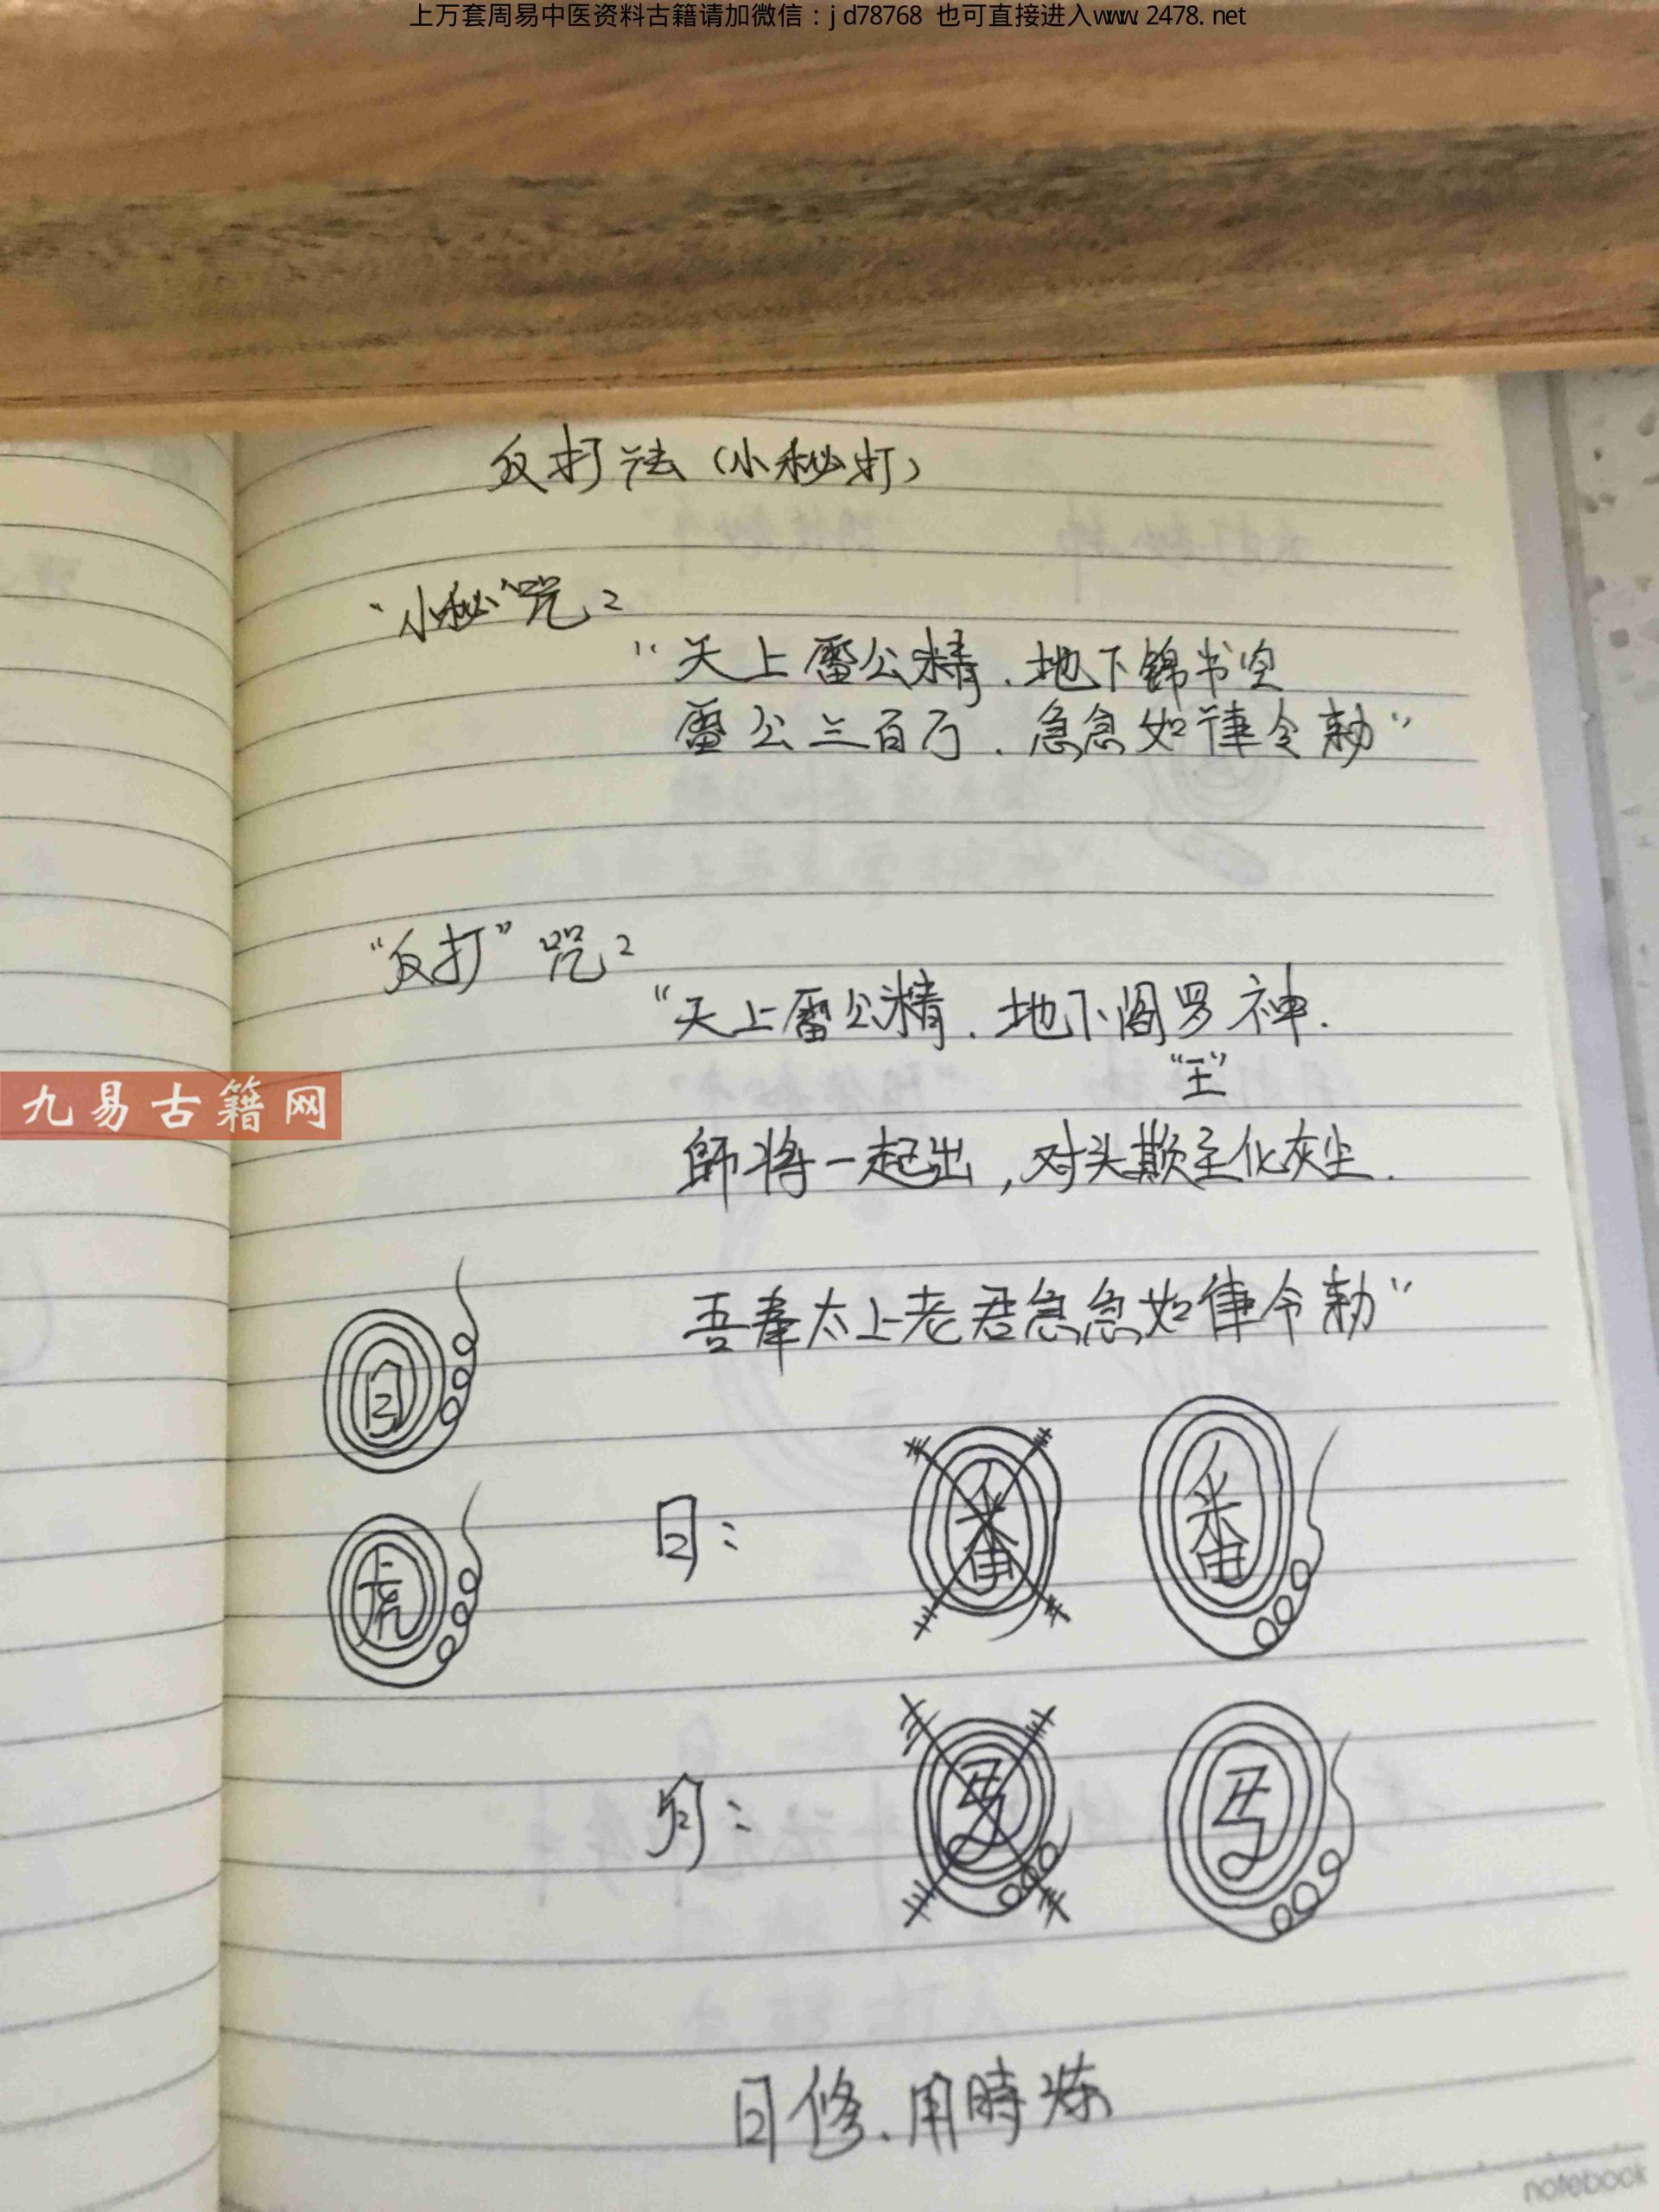 上万套周易中医资料古籍请加微信：jd78768 也可直接进入www.2478.net
反打法（小秘打）
“小秘”咒：
“天上雷公精．地下锦书空
雷公三百万．急急如律令勅”
“反打”咒：
“天上雷公精．地下阎罗神．
“王”
九易古籍网
師将一起出，对头欺主化灰尘．
吾奉太上老君急急如律令勅”
日
虎
日： 番 番
月：
日修．用時炼
notebook